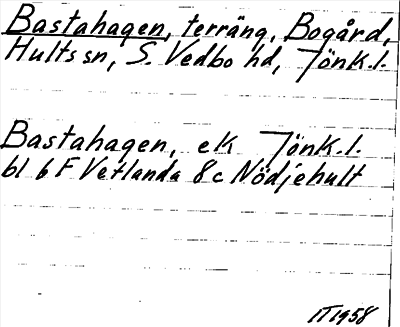 Bastahagen, terräng, Bogård,
Hults sn, S. Vedbo hd, Jönk.l.
Bastahagen, ek Jönk.l.
bl 6 F Vetlanda 8 c Nödjehult
IT 1958